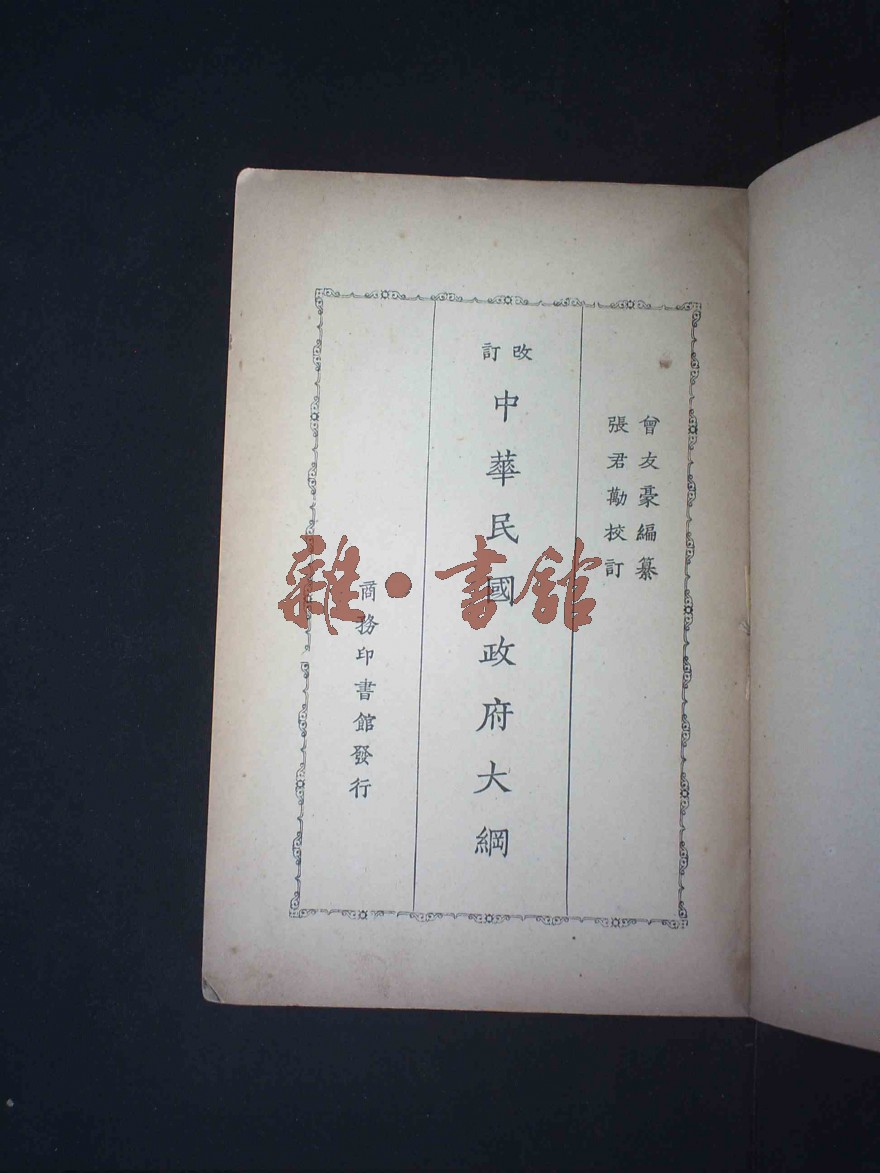 曾友豪編纂
張君勱校訂
改訂
中華民國政府大綱
商務印書館發行
雜·書館